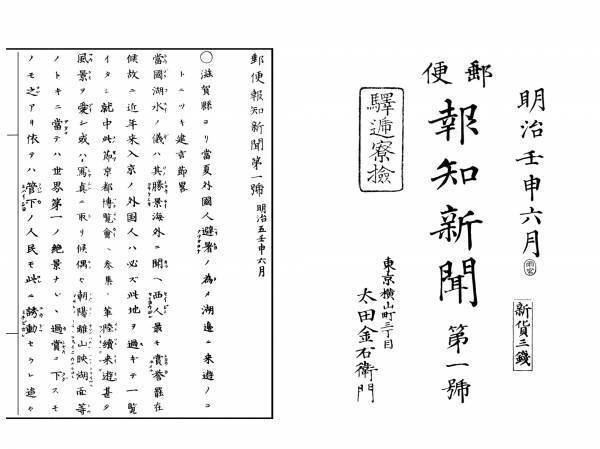 明治壬申六月
新貨三錢
郵便
報知新聞 第一號
驛遞寮檢
東京横山町三丁目
太田金右衛門
郵便報知新聞第一號 明治五壬申六月
〇滋賀縣ヨリ當夏外國人避暑ノ為メ湖邊ニ来遊ノコ
トニツキ建言節畧
當國湖水ノ儀ハ其勝景海外ニ聞ヘ西人最モ賞誉罷在
候故ニ近年来入京ノ外国人ハ必ズ此地ヲ過キテ一覧
イタシ就中此節京都博覧會ヘ参集ノ輩陸續来遊甚タ
風景ヲ愛シ或ハ寫真ニ取リ候偶々朝陽離山映湖面等
ノトキニ當テハ世界第一ノ絶景ナレト過賞ニ下スモ
ノモ之アリ依テハ管下ノ人民モ此ニ誘動セラレ追々